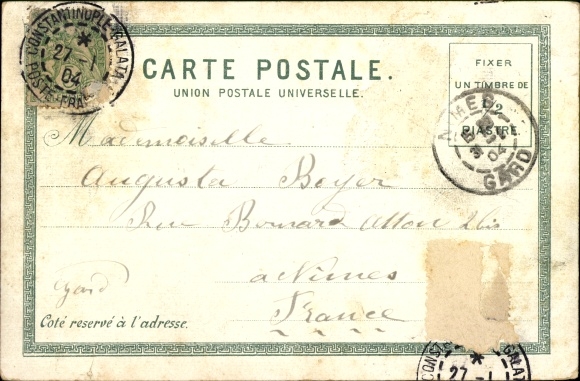 CONSTANTINOPLE-GALATA
27-1
04
POSTE FRA
CARTE POSTALE.
UNION POSTALE UNIVERSELLE.
FIXER
UN TIMBRE DE
1/2
PIASTRE.
NIMES
04
GARD
Mademoiselle
Augusta Boyer
Rue Bernard Atton 2bis
a Nimes
Gard
France
Coté reservé à l'adresse.
CONST GALATA
27-1